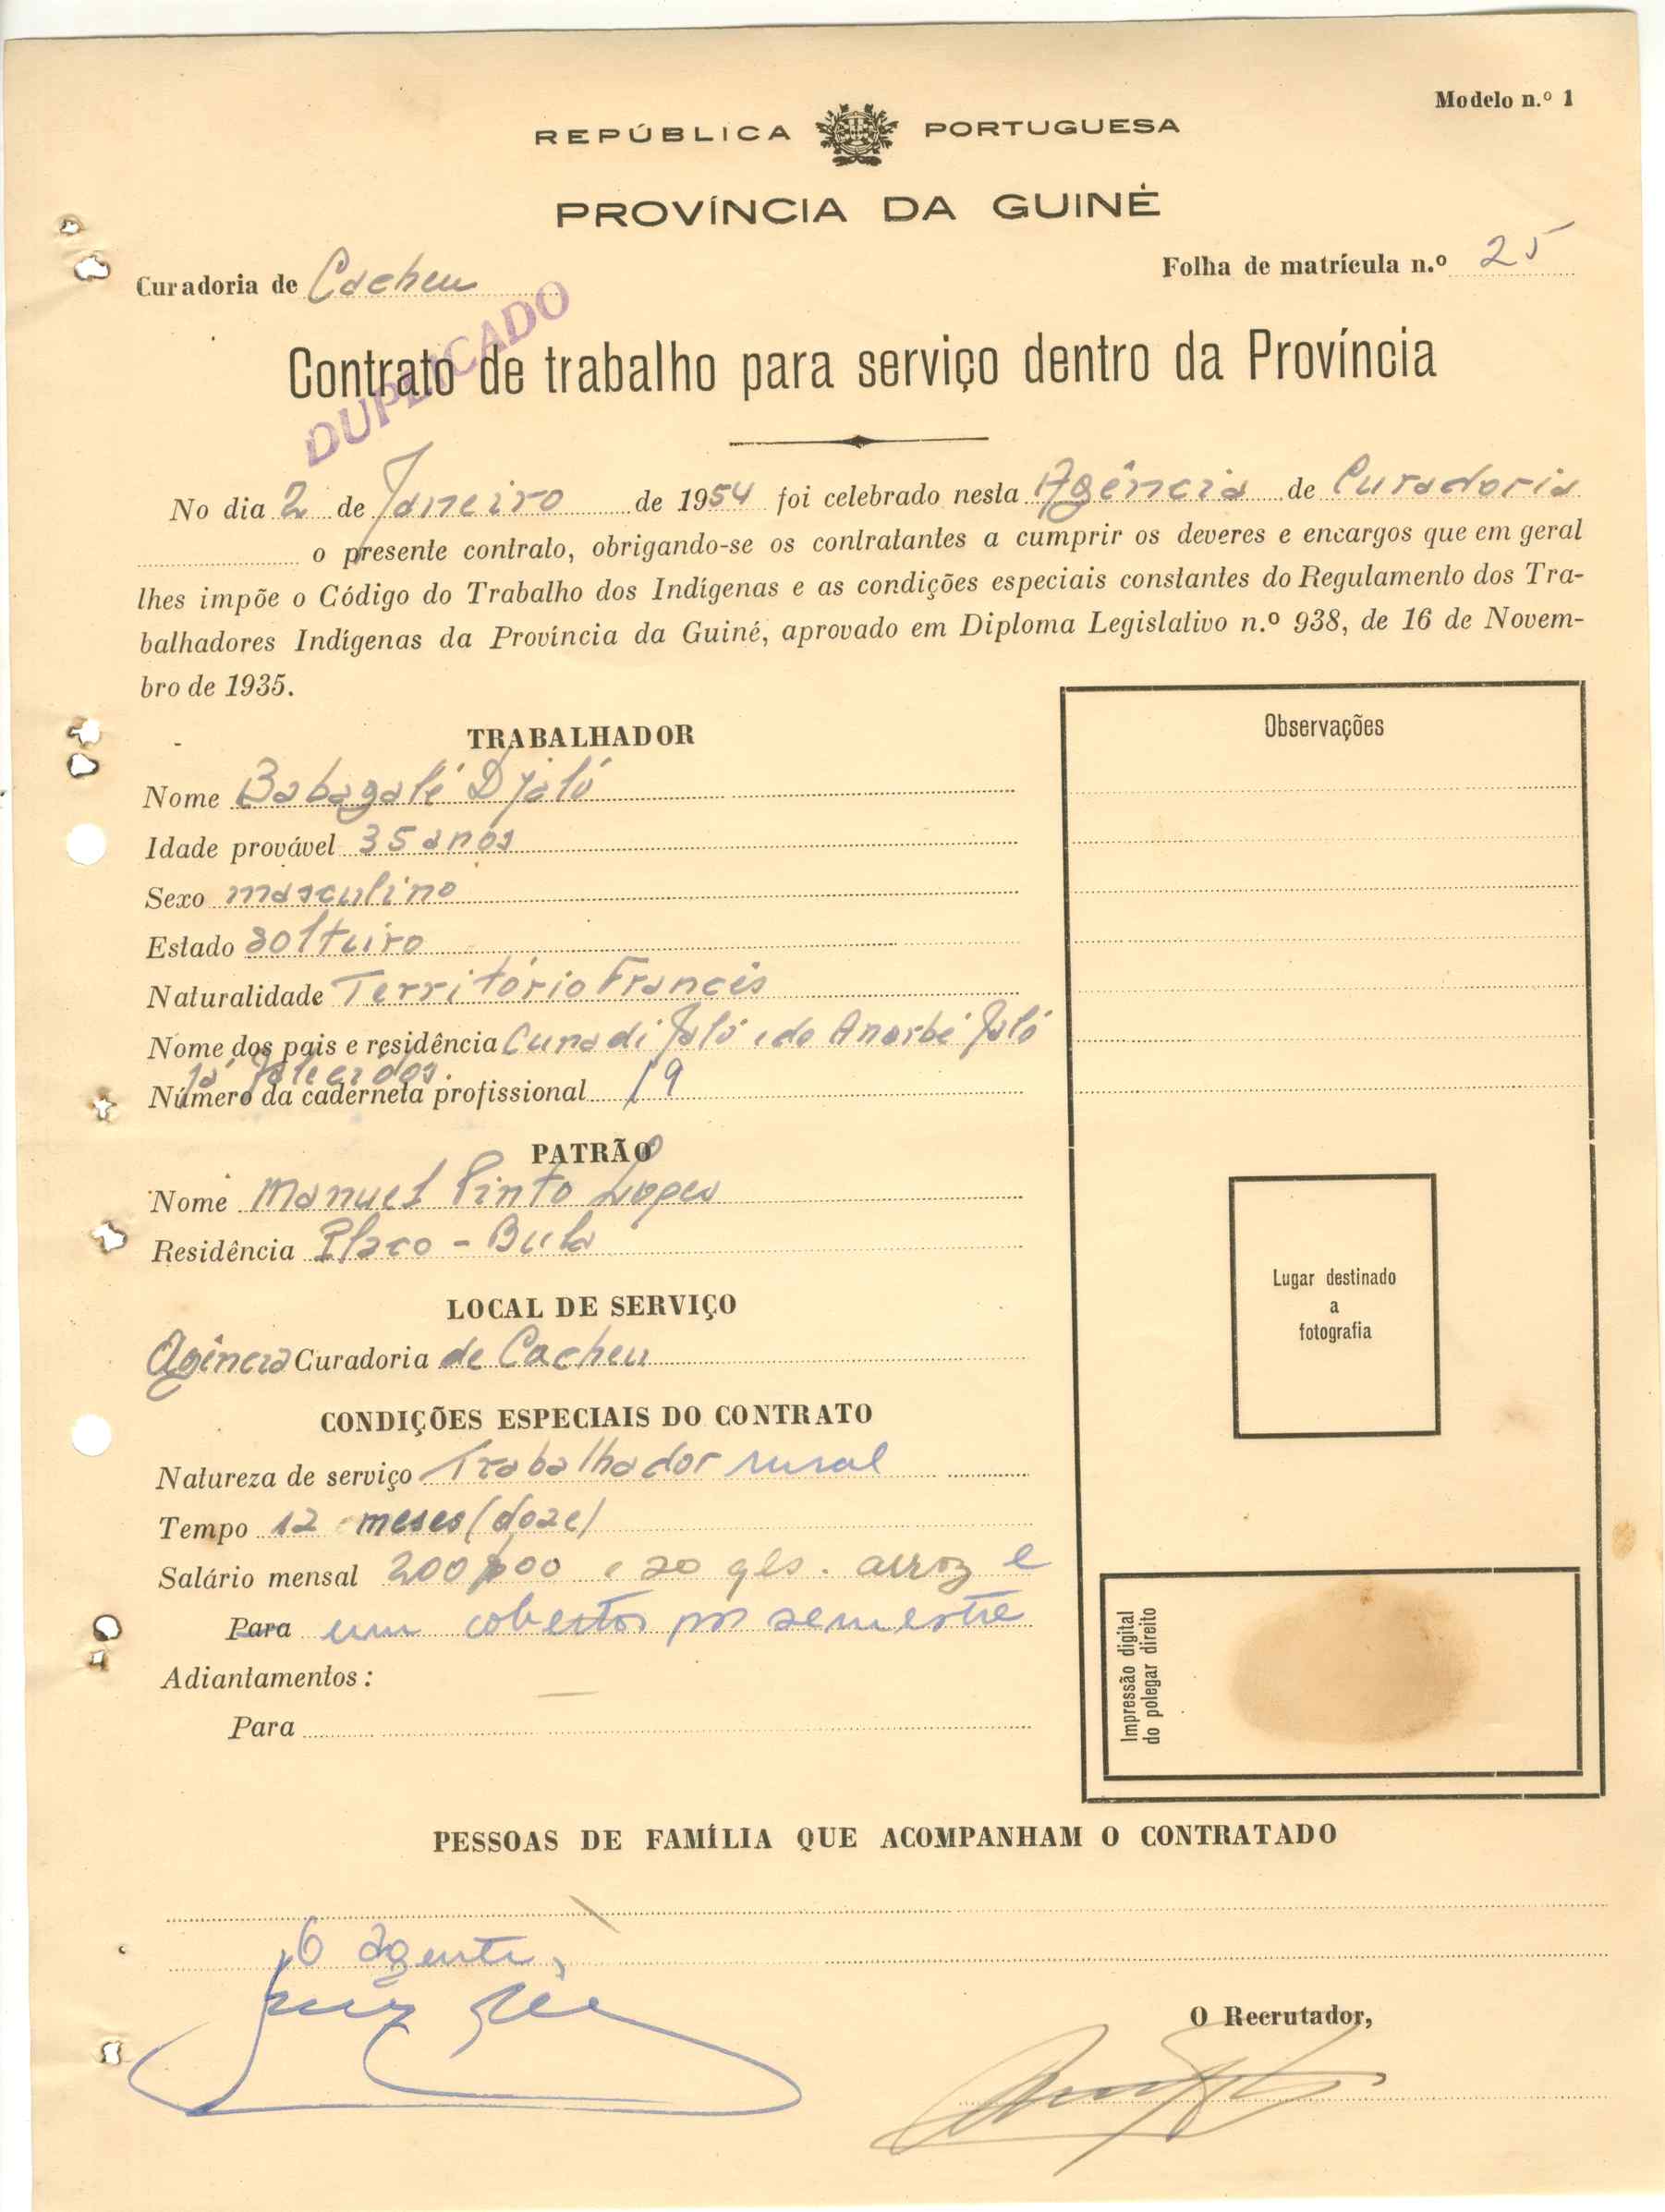 Modelo n.º 1
REPÚBLICA PORTUGUESA
PROVÍNCIA DA GUINÉ
Curadoria de Cacheu
Folha de matrícula n.º 25
DUPLICADO
Contrato de trabalho para serviço dentro da Província
No dia 2 de Janeiro de 1954 foi celebrado nesta Agência de Curadoria
o presente contrato, obrigando-se os contratantes a cumprir os deveres e encargos que em geral
lhes impõe o Código do Trabalho dos Indígenas e as condições especiais constantes do Regulamento dos Tra-
balhadores Indígenas da Província da Guiné, aprovado em Diploma Legislativo n.º 938, de 16 de Novem-
bro de 1935.
TRABALHADOR
Nome Babagalé Djaló
Idade provável 35 anos
Sexo masculino
Estado solteiro
Naturalidade Território Francês
Nome dos pais e residência Cunadi Jaló e de Anarbé Jaló
já falecidos.
Número da caderneta profissional 19
PATRÃO
Nome Manuel Pinto Lopes
Residência Placo - Bula
LOCAL DE SERVIÇO
Agência Curadoria de Cacheu
CONDIÇÕES ESPECIAIS DO CONTRATO
Natureza de serviço Trabalhador rural
Tempo 12 meses (doze)
Salário mensal 200$00 e 20 qls. arroz e
Para um cobertor por semestre
Adiantamentos: —
Para
Observações
Lugar destinado
a
fotografia
Impressão digital
do polegar direito
PESSOAS DE FAMÍLIA QUE ACOMPANHAM O CONTRATADO
O agente,
O Recrutador,